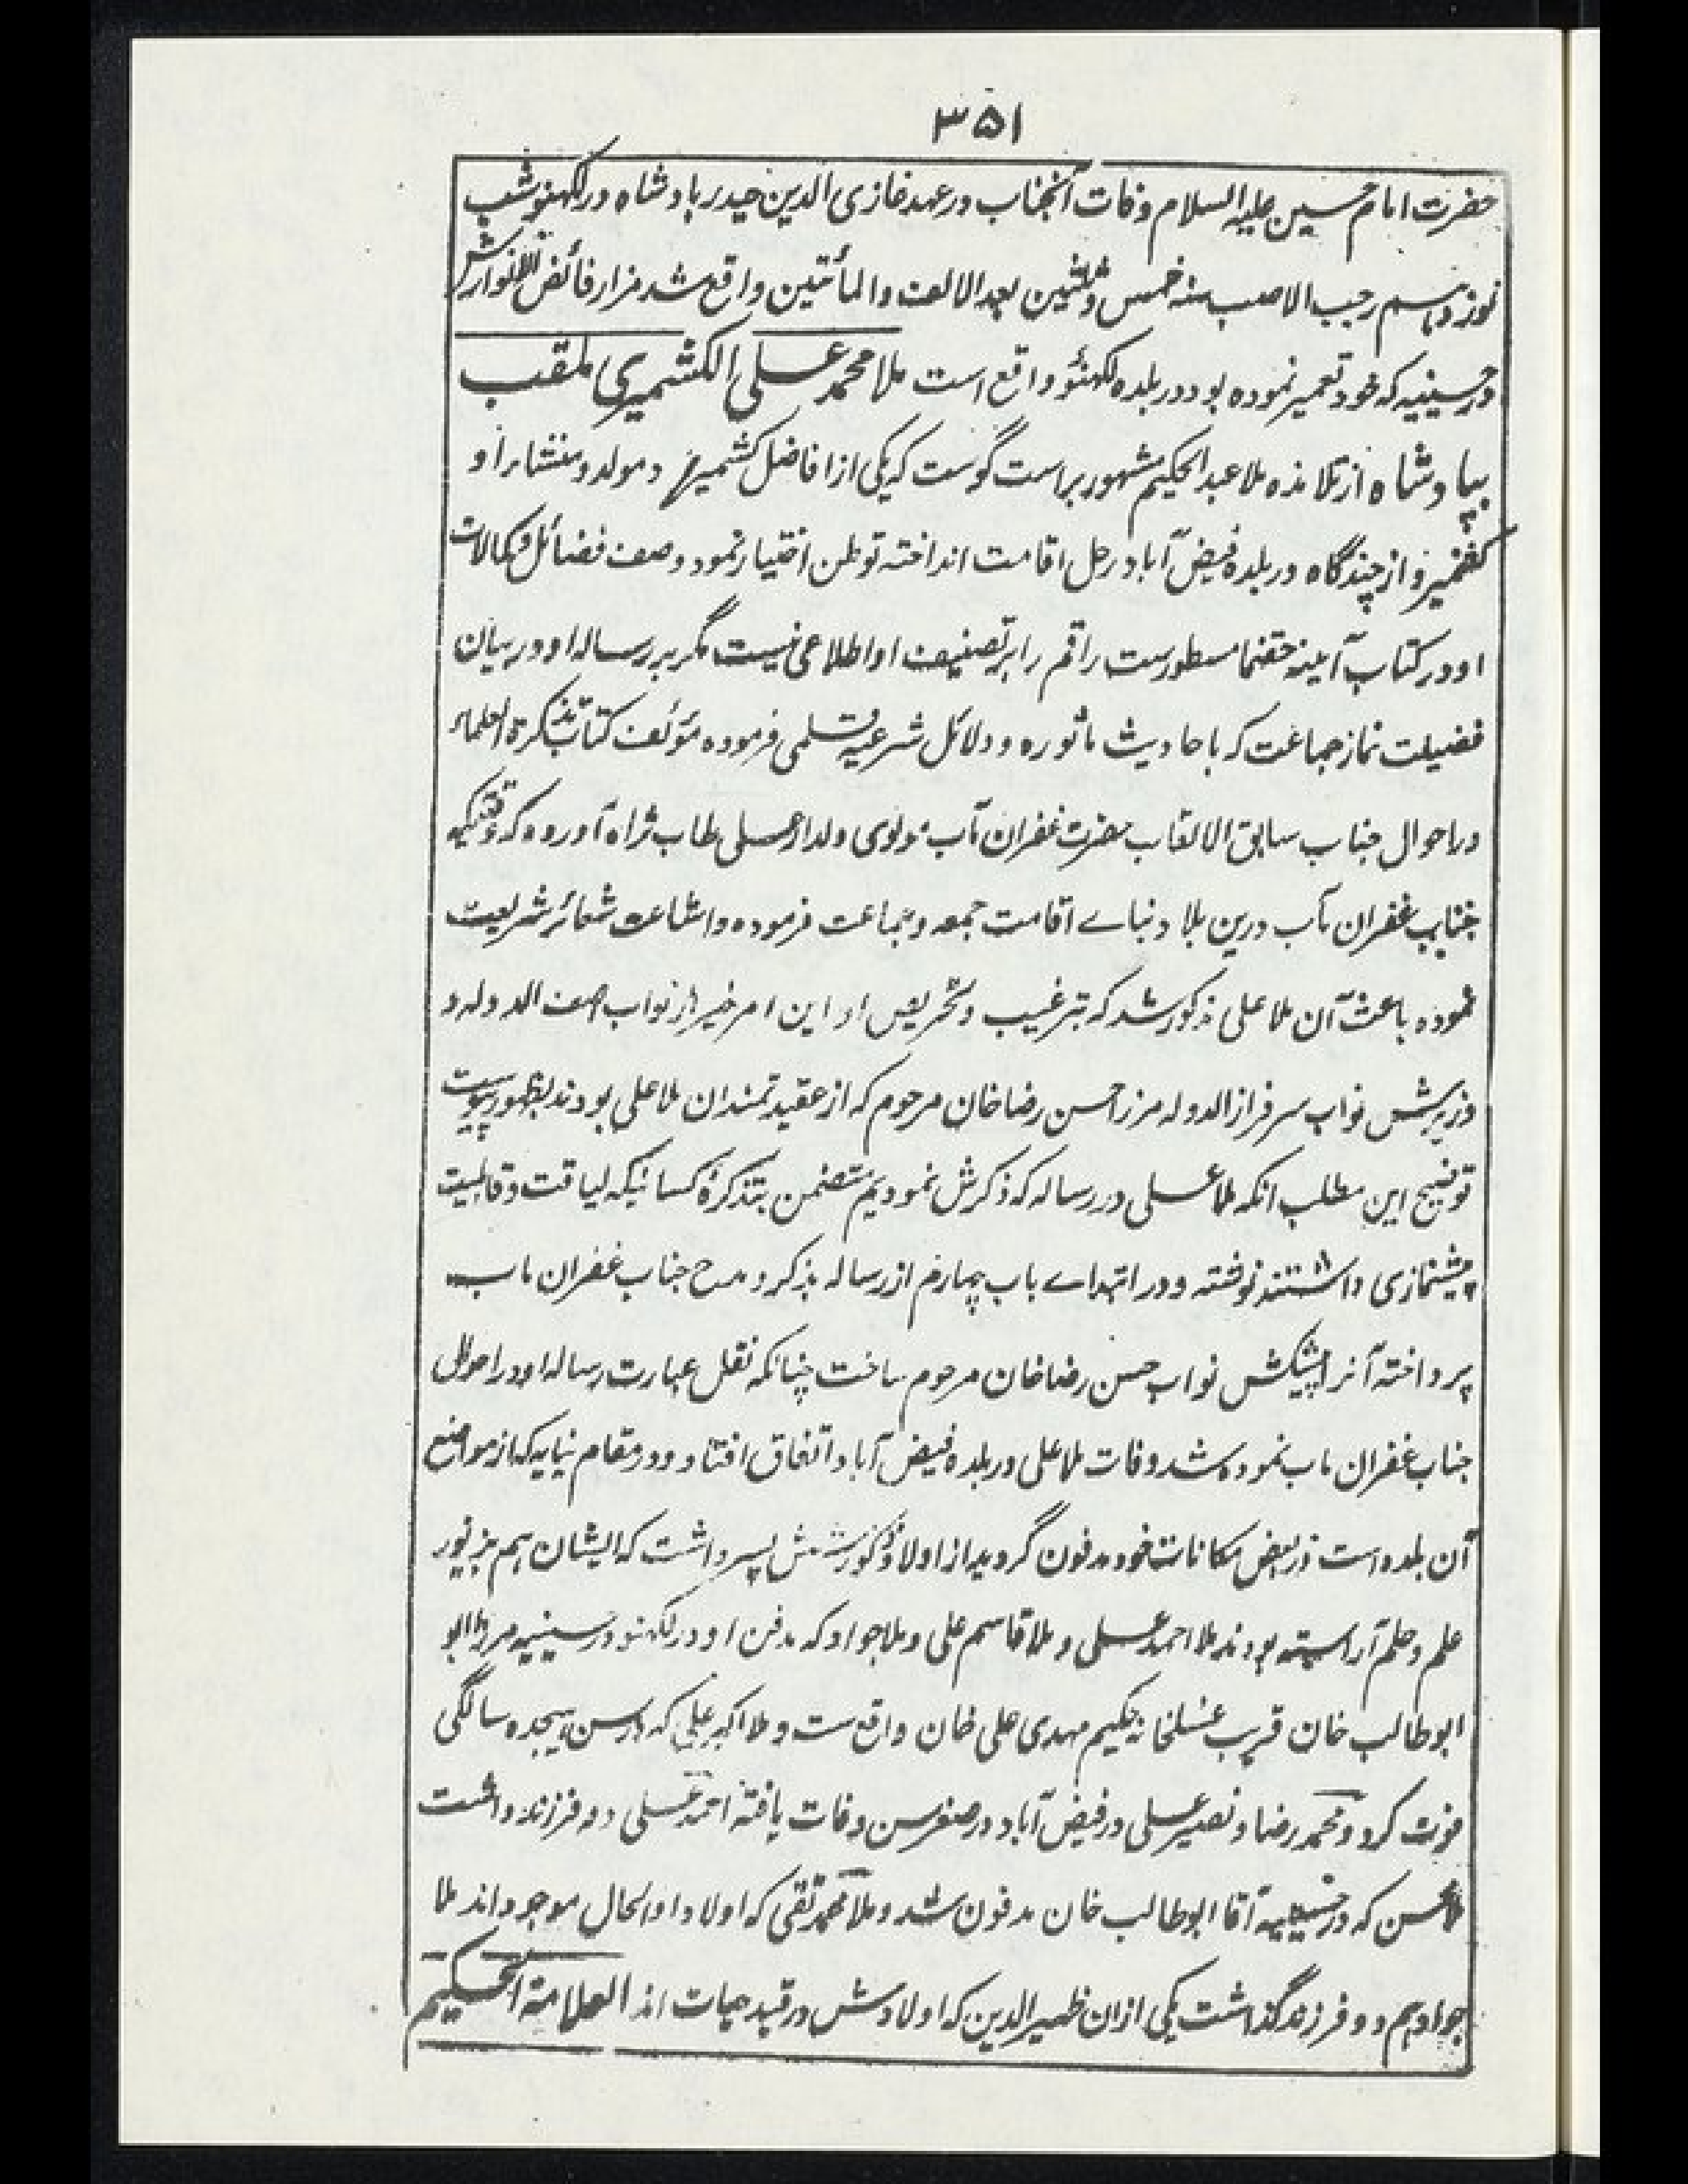 ۳۵۱
حضرت امام حسین علیه السلام وفات آنجناب در عهد غازی الدین حیدر بادشاه در لکهنو شب
نوزدهم رجب الاصب سنه خمس وثلثین بعد الالف والمأتین واقع شد مزار فائض الانوارش
در حسینیه که خود تعمیر نموده بود در بلده لکهنؤ واقع است ملا محمد علی الکشمیری الملقب
بپادشاه از تلامذه ملا عبد الحکیم مشهور براست گوست که یکی از افاضل کشمیر و مولد و منشا او
کشمیر و از چندگاه در بلده فیض آباد رحل اقامت انداخته توطن اختیار نمود وصف فضائل و کمالات
او در کتاب آیینه حقنما مسطورست راقم را بر تصنیف او اطلاعی نیست مگر بر رساله او در بیان
فضیلت نماز جماعت که باحادیث ماثوره و دلائل شرعیه قلمی فرموده مؤلف کتاب تذکرة العلماء
در احوال جناب سابق الالقاب حضرت غفران مآب مولوی دلدار علی طاب ثراه آورده که وقتیکه
جناب غفران مآب درین بلاد بنای اقامت جمعه و جماعت فرموده و اشاعت شعائر شریعت
نموده باعث آن ملا علی مذکور شد که بترغیب و تحریص او این امر خیر از نواب آصف الدوله و
وزیرش نواب سرفراز الدوله مرزا حسن رضا خان مرحوم که از عقیدتمندان ملا علی بودند بظهور پیوست
توضیح این مطلب انکه ملا علی در رساله که ذکرش نمودیم متضمن بتذکرهٔ کسانیکه لیاقت و قابلیت
پیشنمازی داشتند نوشته و در ابتداے باب چهارم از رساله بذکر و مدح جناب غفران ماب
پرداخته آنرا پیشکش نواب حسن رضا خان مرحوم ساخت چنانکه نقل عبارت رساله او در احوال
جناب غفران ماب نموده شد وفات ملا علی در بلده فیض آباد اتفاق افتاد و در مقام که از مواضع
آن بلده است در بعض مکانات خود مدفون گردید از اولاد ذکور شش پسر داشت که ایشان هم بزیور
علم و حلم آراسته بودند ملا احمد علی و ملا قاسم علی و ملا جواد که مدفن او در لکهنو در حسینیه مرزا ابو
ابوطالب خان قریب غسلخانه حکیم مهدی علی خان واقع ست و ملا اکبر علی که در سن هیجده سالگی
فوت کرد و محمد رضا و نصیر علی در فیض آباد در صغر سن وفات یافته احمد علی دو فرزند داشت
ملا محسن که در حسینیه آقا ابوطالب خان مدفون شد و ملا محمد تقی که اولاد او الحال موجود اند ملا
جواد هم دو فرزند گذاشت یکی ازان ظهیر الدین که اولادش در قید حیات اند العلامة الحکیم